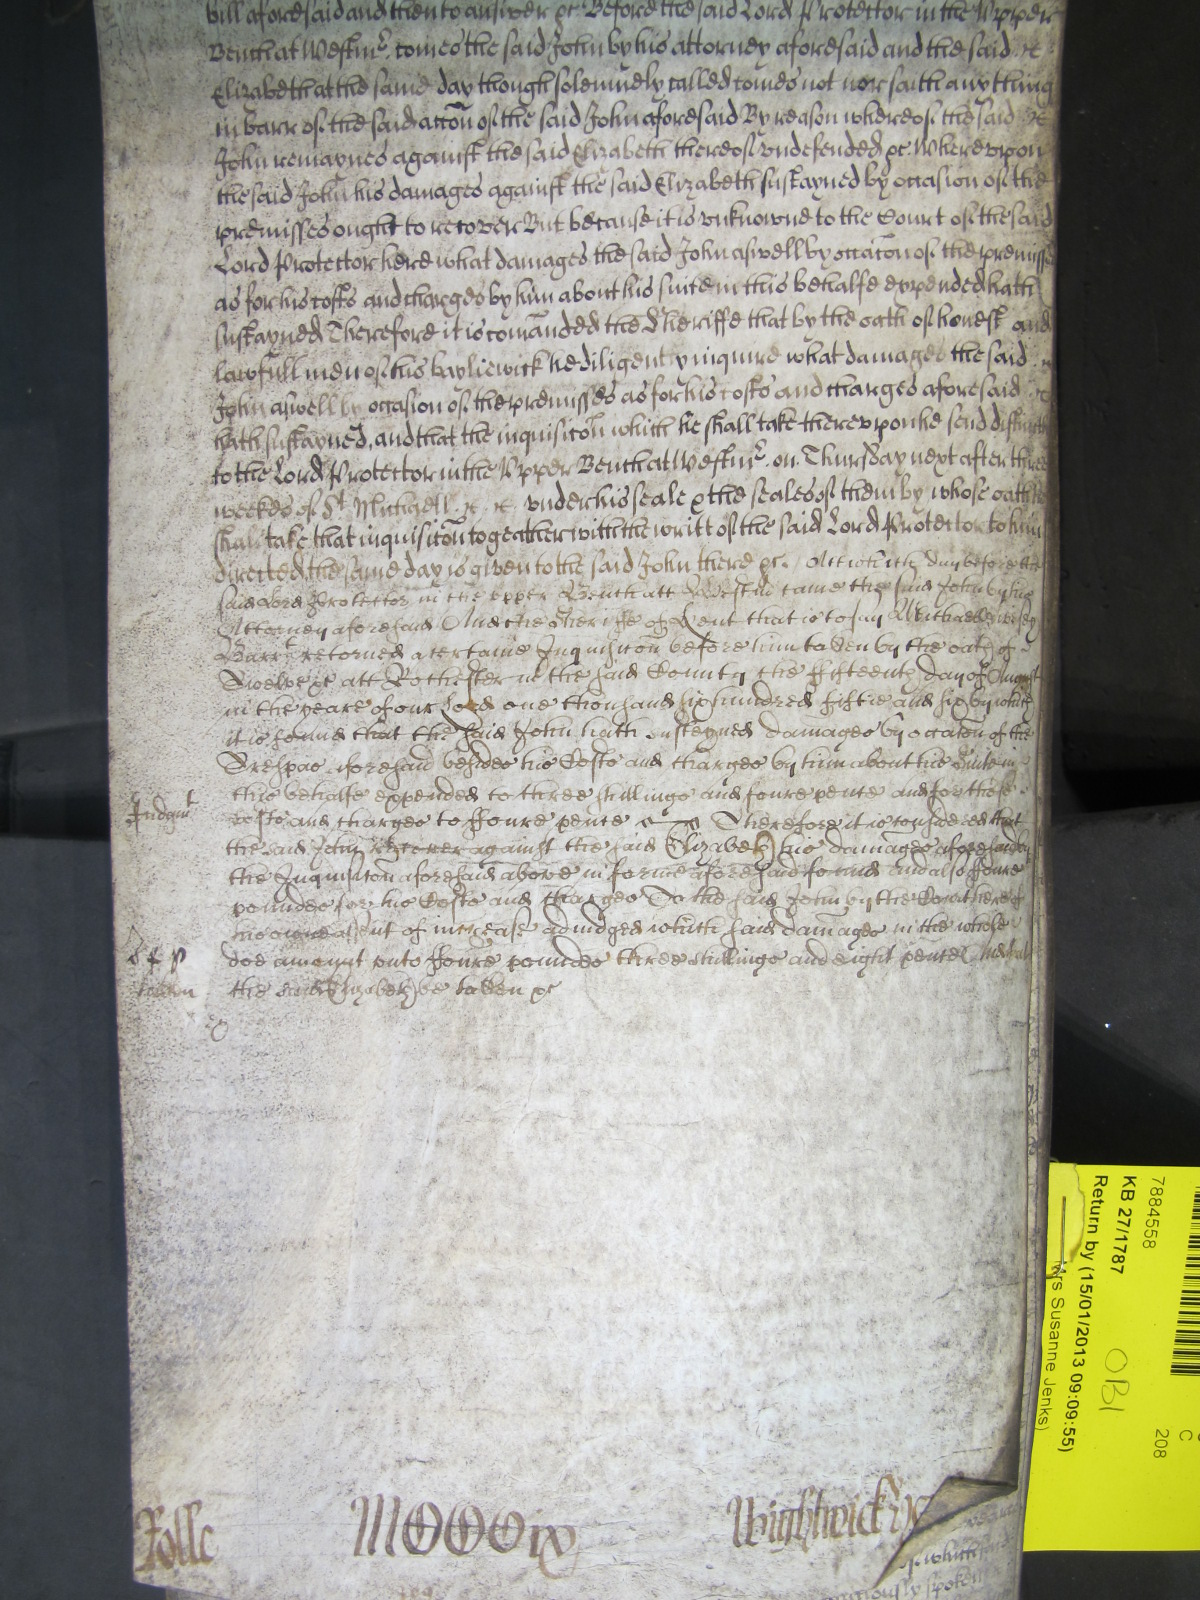 bill aforesaid and then to answer &c Before the said Lord Protector in the Upper
Bench at Westmr. comes the said John by his attorney aforesaid and the said
Elizabeth at the same day though solemnely called comes not nor saith any thing
in barr of the said accon of the said John aforesaid By reason whereof the said
John remaynes against the said Elizabeth thereof undefended &c. Whereupon
the said John his damages against the said Elizabeth sustayned by occasion of the
premisses ought to recover But because it is unknowne to the Court of the said
Lord Protector here what damages the said John aswell by occacon of the premisses
as for his costs and charges by him about his suite in this behalfe expended hath
sustayned Therefore it is comanded the Sheriffe that by the oath of honest and
lawfull men of his bayliewick he diligently inquire what damages the said
John aswell by occasion of the premisses as for his costs and charges aforesaid
hath sustayned, and that the inquisicon which he shall take thereupon he send
to the Lord Protector in the Upper Bench at Westmr. on Thursday next after three
weekes of St Michaell &c &c under his seale & the seales of them by whose oath he
shall take that inquisicon togeather with the writt of the said Lord Protector to him
directed, the same day is given to the said John there &c. Att which day before the
said Lord Protector in the upper Bench att Westm came the said John by his
Attorney aforesaid And the Sheriffe of Kent that is to say Michael
Barrt returned a certaine Inquisicon before him taken by the oath of
Twelve &c att Rochester in the said County the fifteenth day of August
in the yeare of our Lord one thousand six hundred fiftie and six by which
it is found that the said John hath susteyned damages by occacon of the
Trespas aforesaid besides his Costs and charges by him about his Suite in
this behalfe expended to three shillings and foure pence and for those
Costs and charges to ffoure pence Therefore it is considered that
Judgmt
the said John recover against the said Elizabeth his damages aforesaid by
the Inquisicon aforesaid above in forme aforesaid found And also ffoure
poundes for his Costs and Charges To the said John by the Court here of
his owne assent of increase adjudged which said damages in the whole
doe amount unto ffoure poundes three shillings and eight pence And that
the said Elizabeth be taken &c
Rolle
MDCCCix
Wightwick
7884558
KB 27/1787
Return by (15/01/2013 09:09:55)
Mrs Susanne Jenks)
OB1
C
208